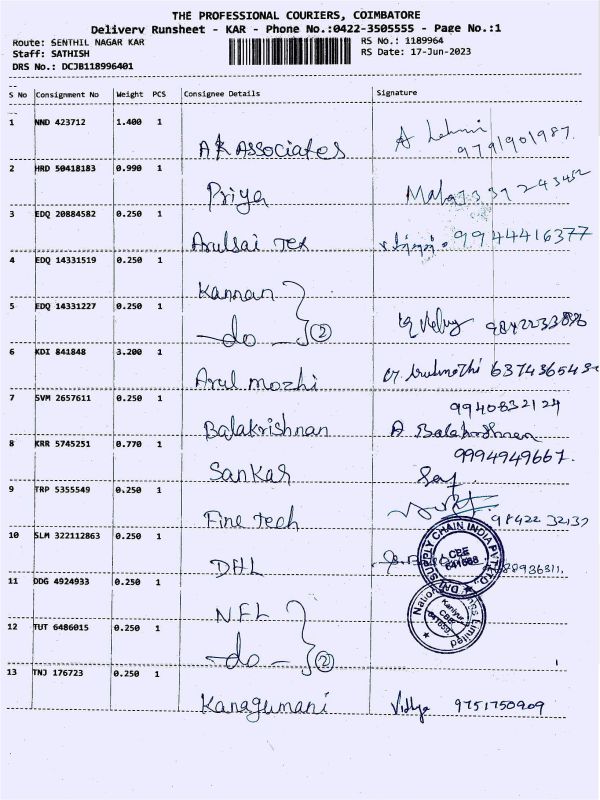 THE PROFESSIONAL COURIERS, COIMBATORE
Delivery Runsheet - KAR - Phone No.:0422-3505555 - Page No.:1
Route: SENTHIL NAGAR KAR
RS No.: 1189964
Staff: SATHISH
RS Date: 17-Jun-2023
DRS No.: DCJB118996401
S No Consignment No Weight PCS Consignee Details Signature
1 NND 423712 1.400 1
AR ASSociates A 9791901987.
2 HRD 50418183 0.990 1
Priya
3 EDQ 20884582 0.250 1
Arulsai Tex 9944416377
4 EDQ 14331519 0.250 1
Kannan
5 EDQ 14331227 0.250 1
-do- 2
6 KDI 841848 3.200 1
Arul mozhi
7 SVM 2657611 0.250 1
9940832124
Balakrishnan A Balakrishnan
8 KRR 5745251 0.770 1
9994949667.
Sankar
9 TRP 5355549 0.250 1
Fine Tech
10 SLM 322112863 0.250 1
DHL
SUPPLY CHAIN INDIA PVT LTD
CBE
11 DDG 4924933 0.250 1
NFL
Limited
12 TUT 6486015 0.250 1
-do- 2
13 TNJ 176723 0.250 1
Kanagumani Vidhya 9751750909